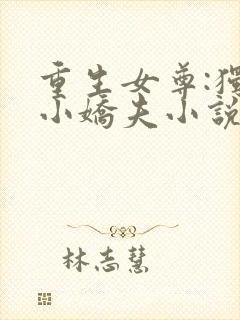 重生女尊:獨
小嬌夫小說
林志慧